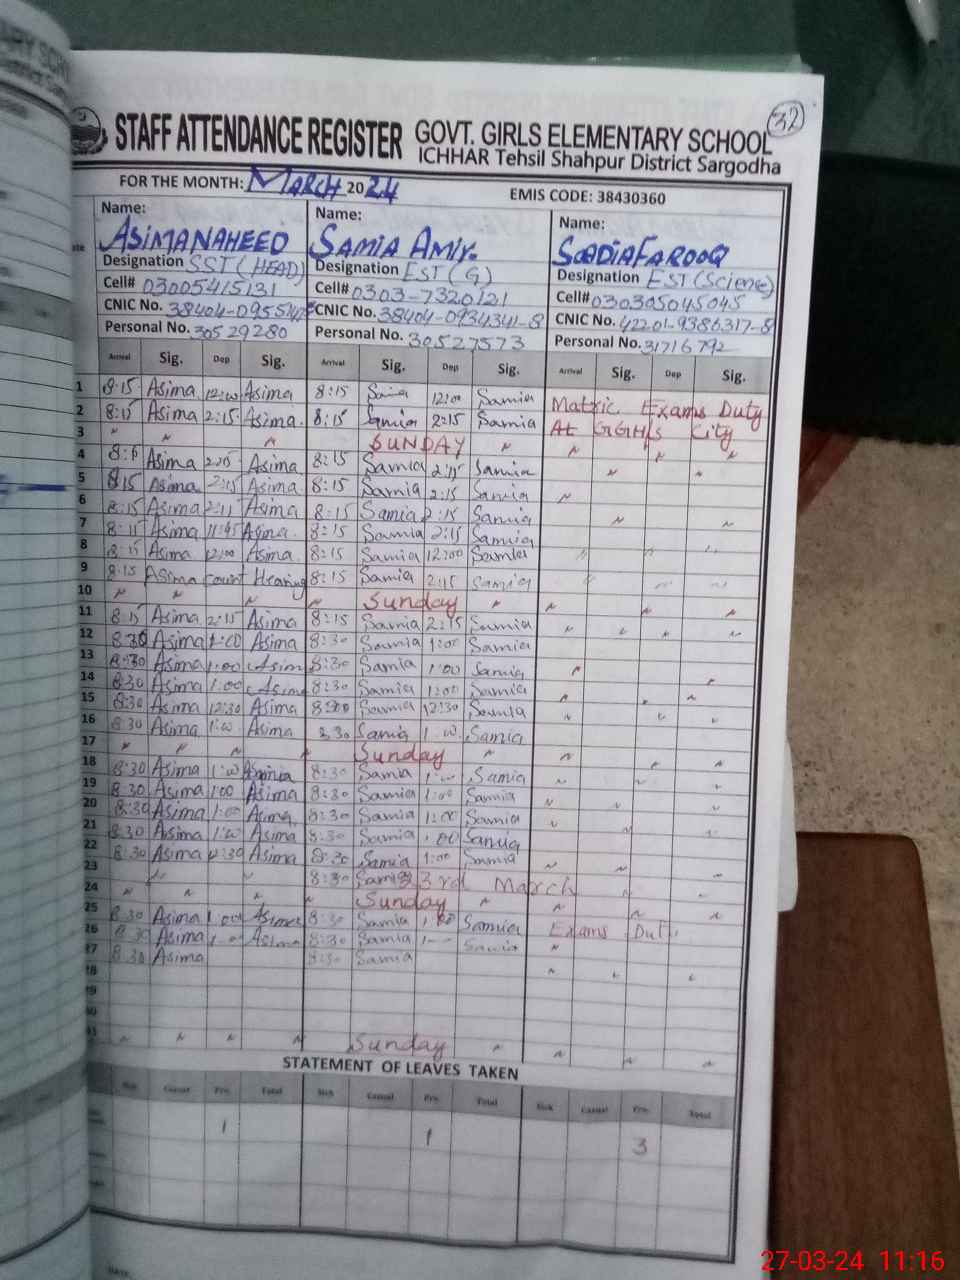 32
STAFF ATTENDANCE REGISTER GOVT. GIRLS ELEMENTARY SCHOOL
ICHHAR Tehsil Shahpur District Sargodha
FOR THE MONTH: MARCH 2024 EMIS CODE: 38430360
Name: Name: Name:
ASIMA NAHEED SAMIA AMIR. SADIA FAROOQ
Designation SST (HEAD) Designation EST (G) Designation EST (Science)
Cell# 03005415131 Cell# 0303-7320121 Cell# 030305045045
CNIC No. 38404-0955142 CNIC No. 38404-0934341-8 CNIC No. 42201-9386317-8
Personal No. 30529280 Personal No. 30527573 Personal No. 31716792
Arrival Sig. Dep Sig. Arrival Sig. Dep Sig. Arrival Sig. Dep Sig.
1 8:15 Asima 12:00 Asima 8:15 Samia 12:00 Samia Matric Exams Duty
2 8:15 Asima 2:15 Asima. 8:15 Samia 2:15 Samia At GGHS City
3 " " " SUNDAY " " " "
4 Asima 2:15 Asima 8:15 Samia 2:15 Samia " "
5 8:15 Asima 2:15 Asima 8:15 Samia 2:15 Samia "
6 8:15 Asima Asima 8:15 Samia 2:15 Samia " "
7 Asima 11:45 Asima. 8:15 Samia 2:15 Samia
8 8:15 Asima 12:00 Asima. 8:15 Samia 12:00 Samia " " "
9 8:15 Asima Court Hearing 8:15 Samia 2:15 Samia " " "
10 " " " " Sunday " " " "
11 8:15 Asima 2:15 Asima 8:15 Samia 2:15 Samia " " " "
12 8:30 Asima 1:00 Asima 8:30 Samia 1:00 Samia
13 8:30 Asima 1:00 Asima 8:30 Samia 1:00 Samia " "
14 8:30 Asima 1:00 Asima 8:30 Samia 1:00 Samia " " "
15 8:30 Asima 12:30 Asima Samia 12:30 Samia " " "
16 8:30 Asima 1:00 Asima 8:30 Samia 1:00 Samia
17 " " " " Sunday " " " "
18 8:30 Asima 1:00 Asima 8:30 Samia 1:00 Samia " " "
19 8:30 Asima 1:00 Asima 8:30 Samia 1:00 Samia " " "
20 8:30 Asima 1:00 Asima 8:30 Samia 1:00 Samia " " "
21 8:30 Asima 1:00 Asima 8:30 Samia 1:00 Samia
22 8:30 Asima 12:30 Asima 8:30 Samia 1:00 Samia " " "
23 " " 8:30 Samia 23rd March "
24 " " " Sunday " " " "
25 8:30 Asima 1:00 Asima 8:30 Samia 1:00 Samia Exams Duty
26 8:30 Asima Asima 8:30 Samia Samia "
27 8:30 Asima 8:30 Samia " " "
28
29
30
31 " " " " Sunday " " " "
STATEMENT OF LEAVES TAKEN
Sick Casual Prv. Total Sick Casual Prv. Total Sick Casual Prv. Total
1 1 3
DATE
27-03-24 11:16